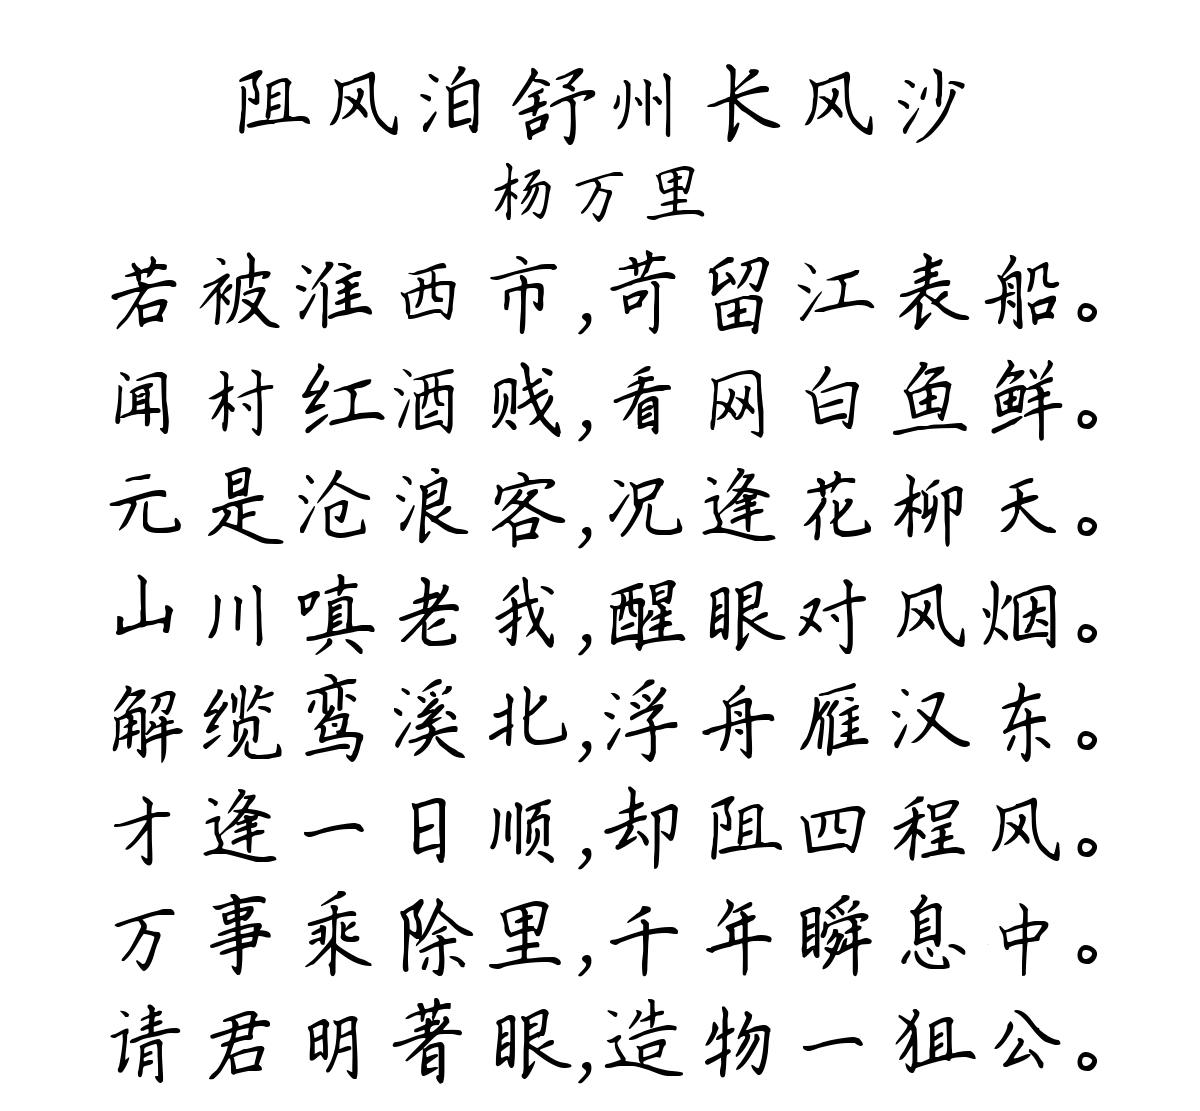 阻风泊舒州长风沙
杨万里
若被淮西市,苛留江表船。
闻村红酒贱,看网白鱼鲜。
元是沧浪客,况逢花柳天。
山川嗔老我,醒眼对风烟。
解缆鸾溪北,浮舟雁汉东。
才逢一日顺,却阻四程风。
万事乘除里,千年瞬息中。
请君明著眼,造物一狙公。